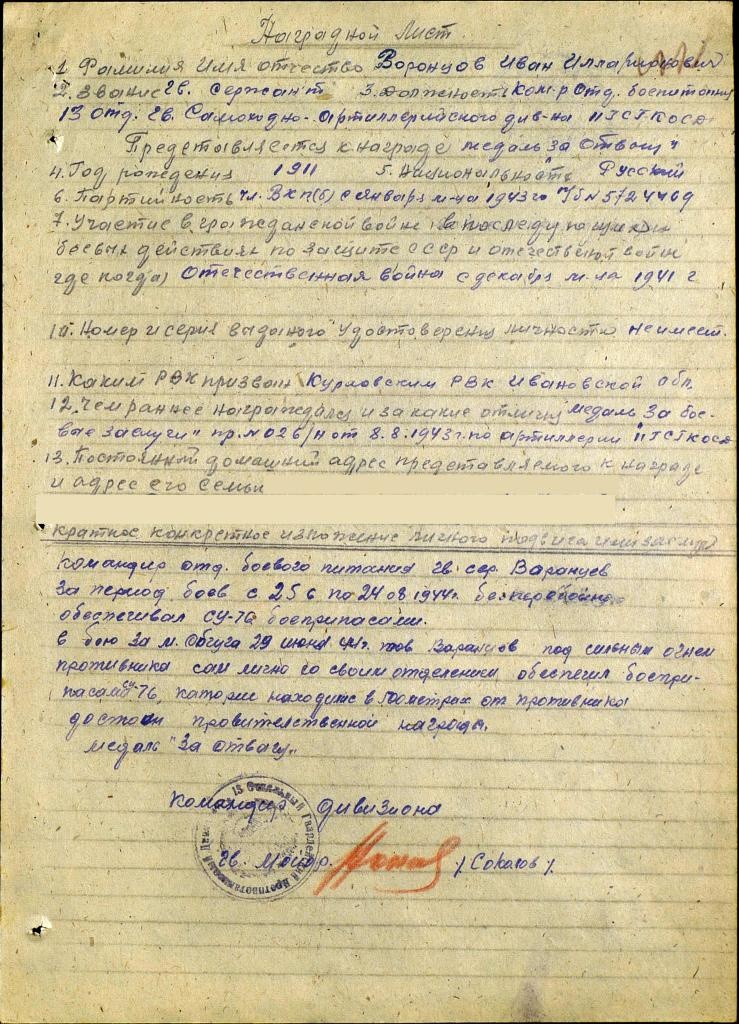 Наградной Лист.
1 Фамилия Имя отчество Воронцов Иван Илларионович
2. Звание Гв. сержант 3. должность Ком-р отд. боепитания
13 отд. Гв. Самоходно-артиллерийского див-на 11 ГСГКОСД
Представляется к награде медаль за Отвагу
4. Год рождения 1911 5. Национальность Русский
6. Партийность чл. ВКП(б) с января м-ца 1943 г. П/б N 5724469
7. Участие в гражданской войне в последующих
боевых действиях по защите СССР и отечественной войне
где когда) Отечественная война с декабря м-ца 1941 г
10. Номер и серия выданого удостоверения личности не имеет.
11. Каким РВК призван Курловским РВК Ивановской обл.
12. Чем раннее награждался и за какие отличия медаль За бое-
вые заслуги" пр. N 026/н от 8.8.1943 г. по артиллерии 11 ГСГКОСД
13. Постоянный домашний адрес представляемого к награде
и адрес его семьи
краткое, конкретное изложение личного подвига или заслуг
командир отд. боевого питания гв. сер. Варанцев
за период боев с 25 6 по 24 08 1944г. бесперебойно
обеспечивал СУ-76 боеприпасами.
в бою за м. Обчуга 29 июня 44 г. тов Варанцов под сильным огнем
противника сам лично со своим отделением обеспечил боепри-
пасами СУ-76, каторые находилс в метрах от противника
достоин правителственной награды.
медаль "За отвагу".
Командир дивизиона
Гв. Майор. / Соколов /.
13 Отдельный Гвардейский Противотанковый